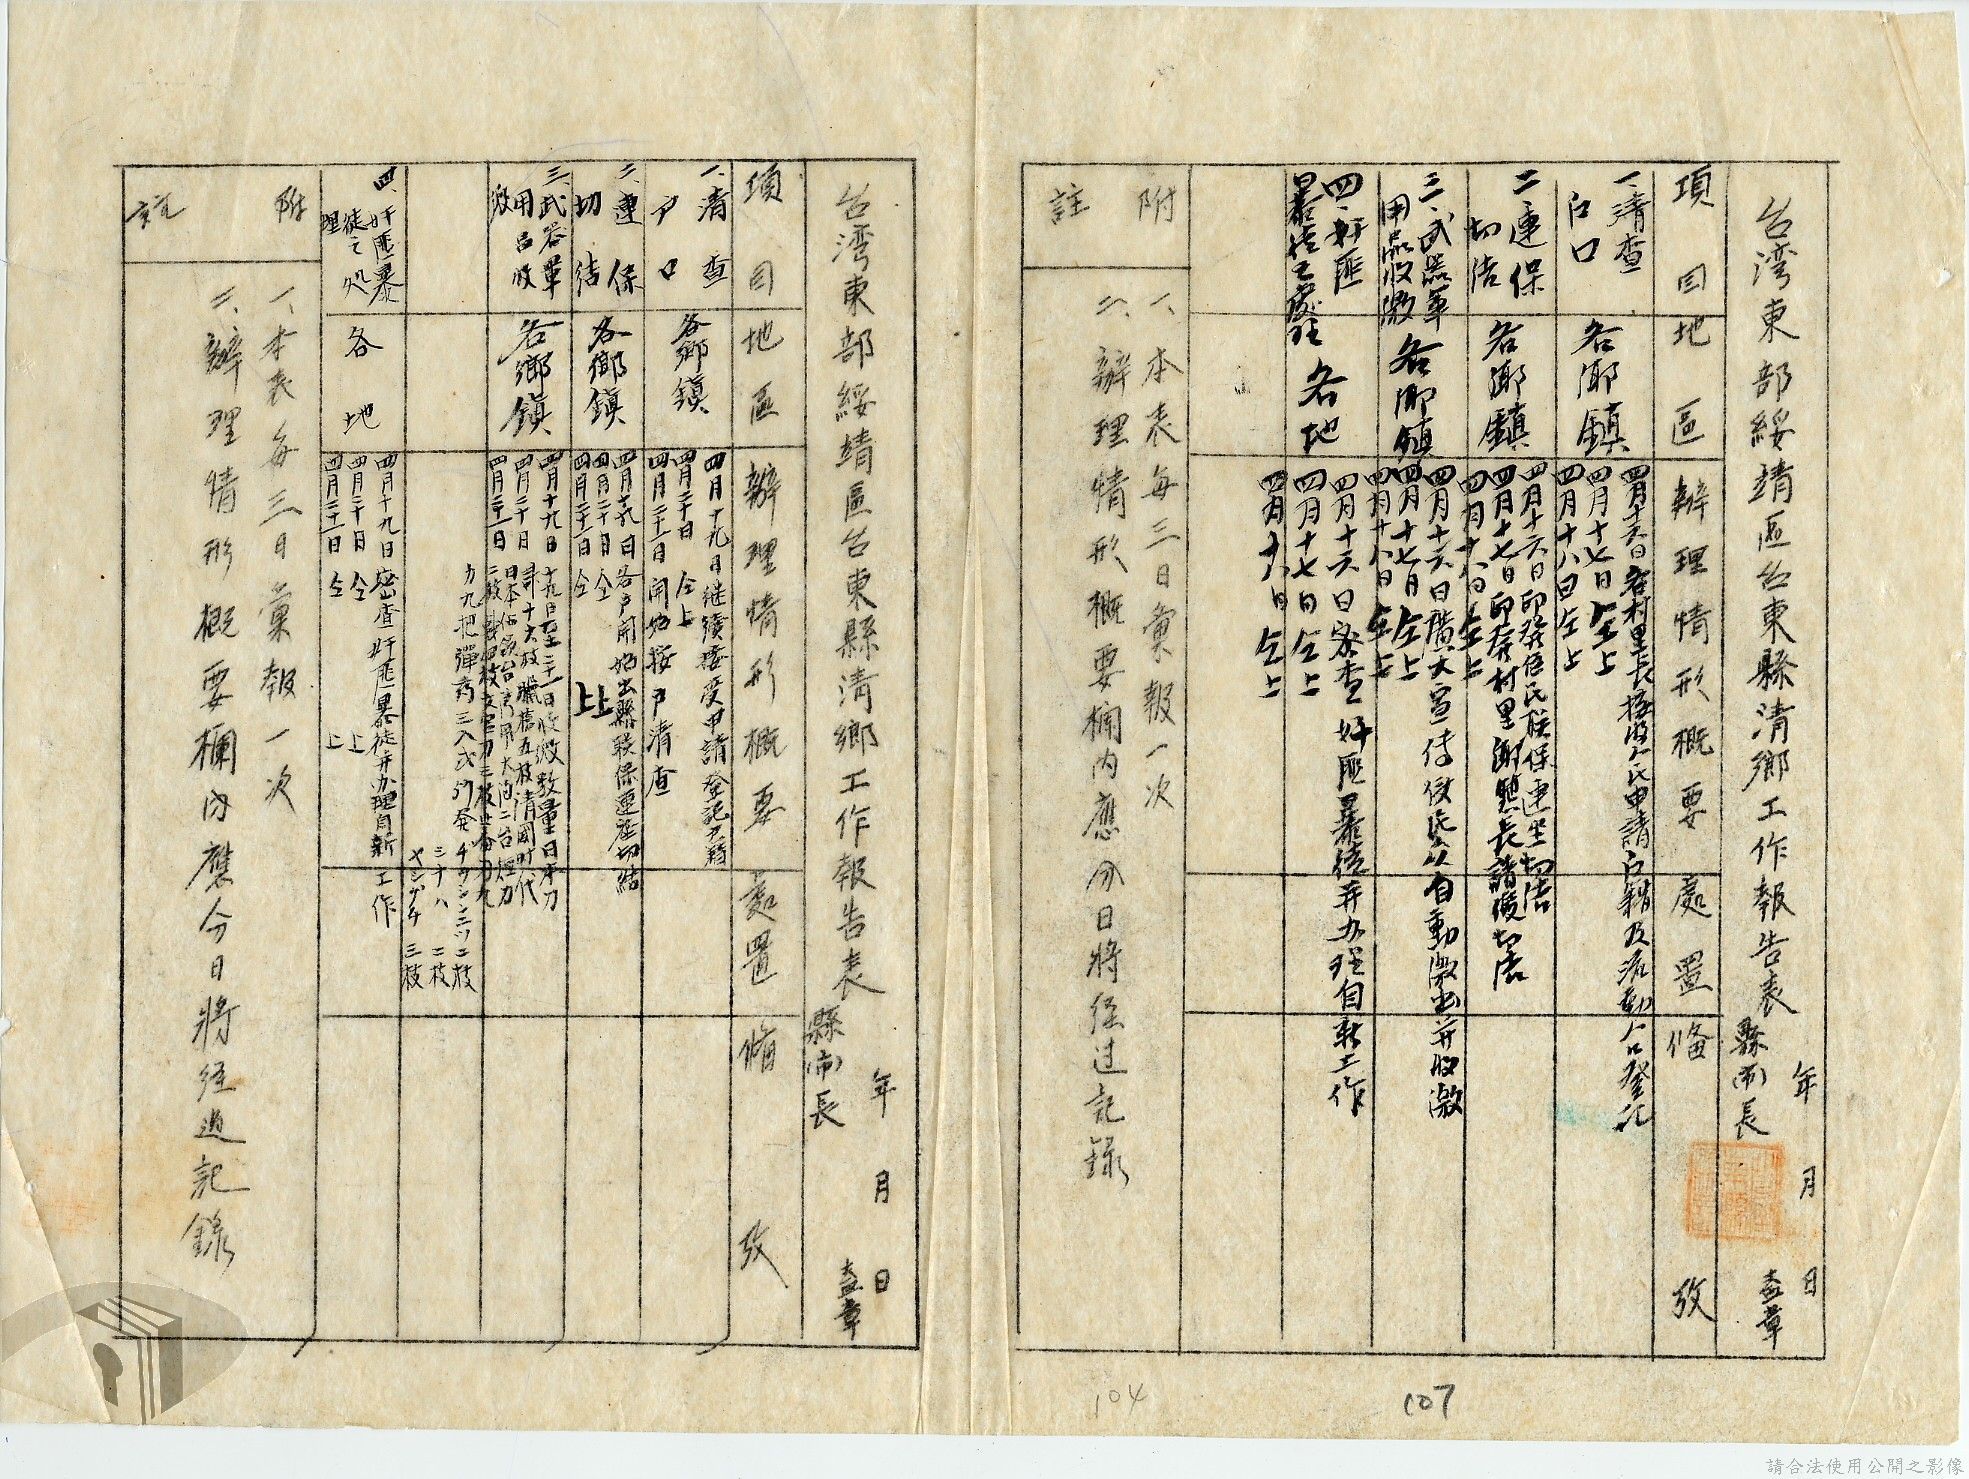 台湾東部綏靖區台東縣清鄉工作報告表
年 月 日
縣(市)長
蓋章
項目
地區
辦理情形概要
處置
俻攷
一、清查
户口
各鄉鎮
四月十六日各村里長接受人民申請户籍及流動人口登記
四月十七日仝上
四月十八日仝上
二連保
切结
各鄉鎮
四月十六日印發居民联保連坐切结
四月十七日印發村里鄰長諸侯切结
四月十八日仝上
三、武器軍
用品收繳
各鄉鎮
四月十六日廣大宣传 自動繳出并收繳
四月十七日仝上
四月十八日仝上
四、奸匪
暴徒之處理
各地
四月十六日密查奸匪暴徒并办理自新工作
四月十七日仝上
四月十八日仝上
附註
一、本表每三日彙報一次
二、辦理情形概要欄内應分日將经过記錄
107
104
台湾東部綏靖區台東縣清鄉工作報告表
年 月 日
縣(市)長
蓋章
項目
地區
辦理情形概要
處置
俻攷
一、清查
户口
各鄉鎮
四月十九日继續接受申請登記户籍
四月二十日 仝上
四月二十一日開始按户清查
二、連保
切结
各鄉鎮
四月十九日各户開始出縣联保連座切結
四月二十日 仝上
四月二十一日 仝上
三、武器軍
用品收
繳
各鄉鎮
四月十九日 十九日至二十一日收繳数量日本刀
四月二十日 清國時代
四月二十一日
九把彈药三八式
二枝
シナハ 二枝
三枝
四、奸匪暴
徒之处
理
各地
四月十九日密查奸匪暴徒并办理自新工作
四月二十日 仝上
四月二十一日 仝上
附註
一、本表每三日彙報一次
二、辦理情形概要欄内應分日將经過記錄
請合法使用公開之影像